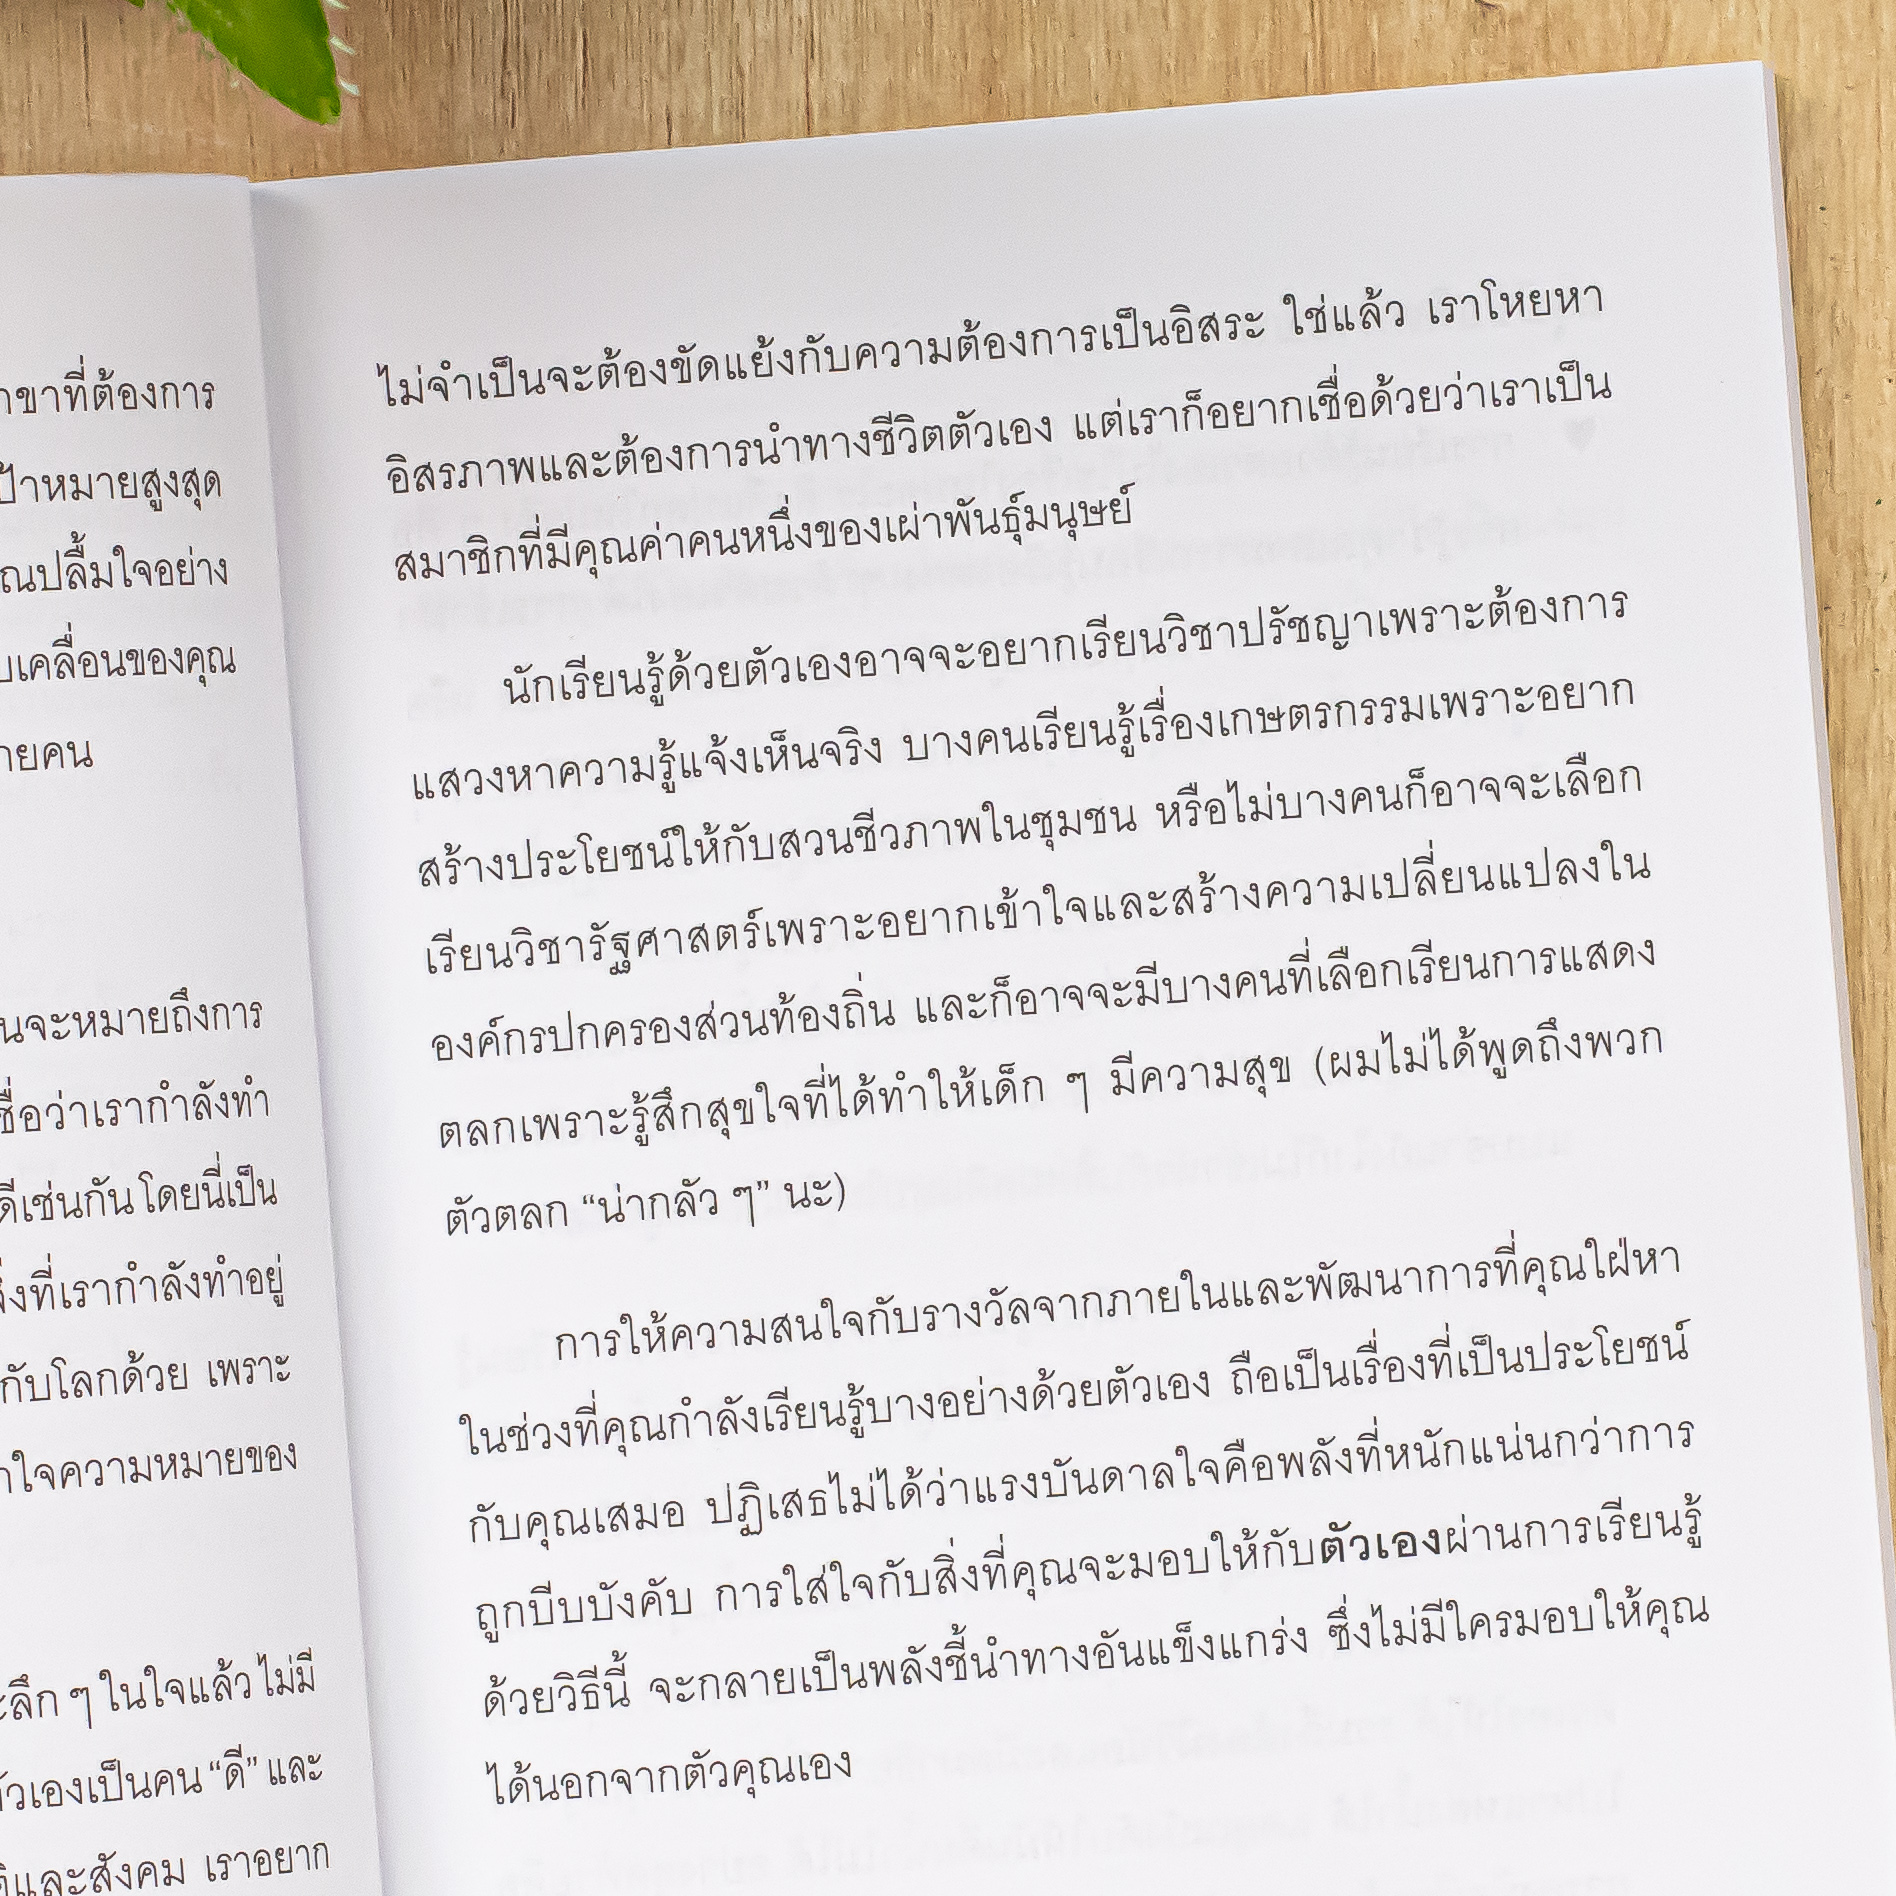 ขาที่ต้องการ
ป้าหมายสูงสุด
ณปลื้มใจอย่าง
เคลื่อนของคุณ
ายคน
นจะหมายถึงการ
ชื่อว่าเรากำลังทำ
ดีเช่นกัน โดยนี่เป็น
งที่เรากำลังทำอยู่
กับโลกด้วย เพราะ
าใจความหมายของ
ะลึก ๆ ในใจแล้ว ไม่มี
ัวเองเป็นคน “ดี” และ
และสังคม เราอยาก
ไม่จำเป็นจะต้องขัดแย้งกับความต้องการเป็นอิสระ ใช่แล้ว เราโหยหา
อิสรภาพและต้องการนำทางชีวิตตัวเอง แต่เราก็อยากเชื่อด้วยว่าเราเป็น
สมาชิกที่มีคุณค่าคนหนึ่งของเผ่าพันธุ์มนุษย์
นักเรียนรู้ด้วยตัวเองอาจจะอยากเรียนวิชาปรัชญาเพราะต้องการ
แสวงหาความรู้แจ้งเห็นจริง บางคนเรียนรู้เรื่องเกษตรกรรมเพราะอยาก
สร้างประโยชน์ให้กับสวนชีวภาพในชุมชน หรือไม่บางคนก็อาจจะเลือก
เรียนวิชารัฐศาสตร์เพราะอยากเข้าใจและสร้างความเปลี่ยนแปลงใน
องค์กรปกครองส่วนท้องถิ่น และก็อาจจะมีบางคนที่เลือกเรียนการแสดง
ตลกเพราะรู้สึกสุขใจที่ได้ทำให้เด็ก ๆ มีความสุข (ผมไม่ได้พูดถึงพวก
ตัวตลก “น่ากลัว ๆ” นะ)
การให้ความสนใจกับรางวัลจากภายในและพัฒนาการที่คุณใฝ่หา
ในช่วงที่คุณกำลังเรียนรู้บางอย่างด้วยตัวเอง ถือเป็นเรื่องที่เป็นประโยชน์
กับคุณเสมอ ปฏิเสธไม่ได้ว่าแรงบันดาลใจคือพลังที่หนักแน่นกว่าการ
ถูกบีบบังคับ การใส่ใจกับสิ่งที่คุณจะมอบให้กับตัวเองผ่านการเรียนรู้
ด้วยวิธีนี้ จะกลายเป็นพลังชี้นำทางอันแข็งแกร่ง ซึ่งไม่มีใครมอบให้คุณ
ได้นอกจากตัวคุณเอง